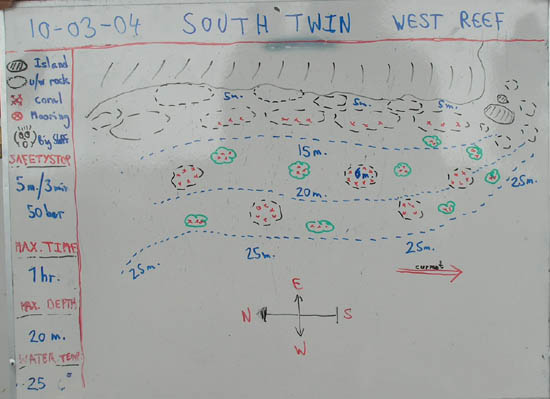 10-03-04 SOUTH TWIN WEST REEF
Island
u/w rock
coral
Mooring
Big Stuff
SAFETYSTOP
5 m./3 min
50 bar
MAX. TIME
1 hr.
MAX. DEPTH
20 m.
WATER TEMP.
25 C°
5m. 5m. 5m.
15 m.
6 m.
20 m.
25m.
25m.
25m.
25m.
current
E
N S
W